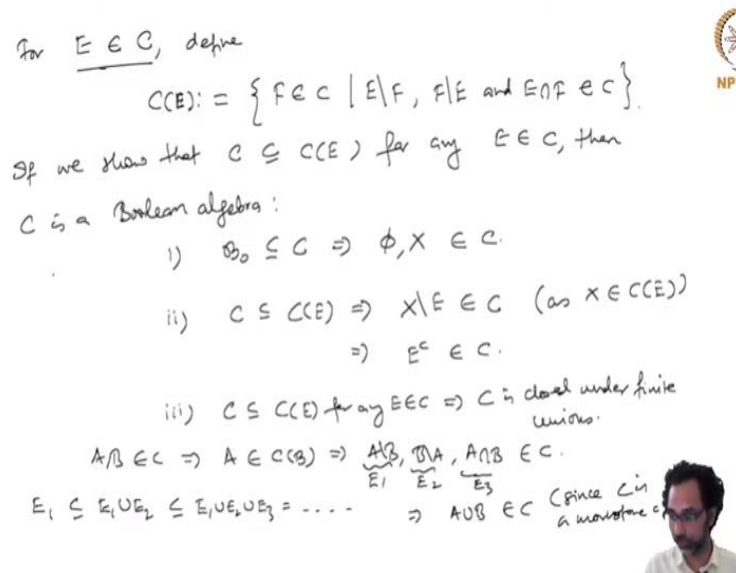 For E ∈ C, define
C(E) := { F ∈ C | E\F, F\E and E∩F ∈ C }.
If we show that C ⊆ C(E) for any E ∈ C, then
C is a Boolean algebra :
i) B₀ ⊆ C ⇒ ϕ, X ∈ C.
ii) C ⊆ C(E) ⇒ X\E ∈ C (as X ∈ C(E))
⇒ Eᶜ ∈ C.
iii) C ⊆ C(E) for any E ∈ C ⇒ C is closed under finite
unions.
A,B ∈ C ⇒ A ∈ C(B) ⇒ A\B, B\A, A∩B ∈ C.
E₁ E₂ E₃
E₁ ⊆ E₁∪E₂ ⊆ E₁∪E₂∪E₃ = .... ⇒ A∪B ∈ C (since C is
a monotone
NP